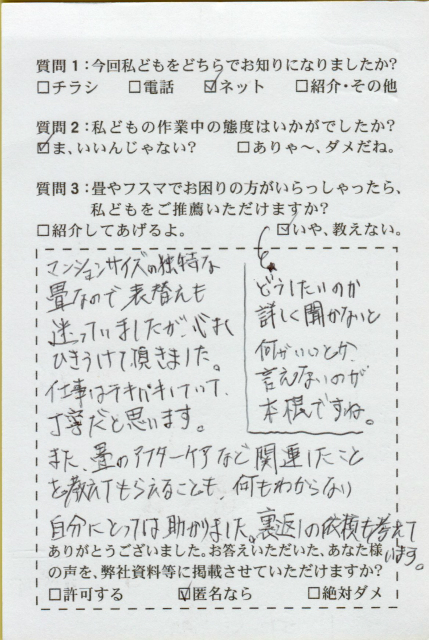 質問1：今回私どもをどちらでお知りになりましたか？
□チラシ □電話 ☑ネット □紹介・その他
質問2：私どもの作業中の態度はいかがでしたか？
☑ま、いいんじゃない？ □ありゃ～、ダメだね。
質問3：畳やフスマでお困りの方がいらっしゃったら、
私どもをご推薦いただけますか？
□紹介してあげるよ。 ☑いや、教えない。
マンションサイズの独特な
畳なので表替えも
迷っていましたが、心よく
ひきうけて頂きました。
仕事はテキパキしていて、
丁寧だと思います。
どうしたいのか
詳しく聞かないと
何がいいとか、
言えないのが
本根ですね。
また、畳のアフターケアなど関連したこと
を教えてもらえることも、何もわからない
自分にとっては助かりました。裏返しの依頼も考えて
います。
ありがとうございました。お答えいただいた、あなた様
の声を、弊社資料等に掲載させていただけますか？
□許可する ☑匿名なら □絶対ダメ